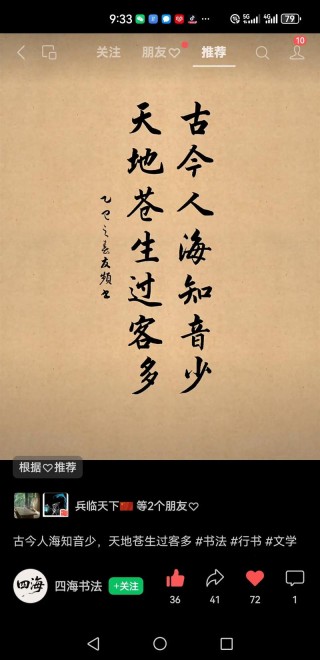 9:33
5G
4G
79
关注
朋友♡
推荐
10
古今人海知音少
天地苍生过客多
乙巳之春友频书
根据♡推荐
兵临天下🇨🇳 等2个朋友♡
古今人海知音少，天地苍生过客多 #书法 #行书 #文学
四海
四海书法
+关注
36
41
72
1